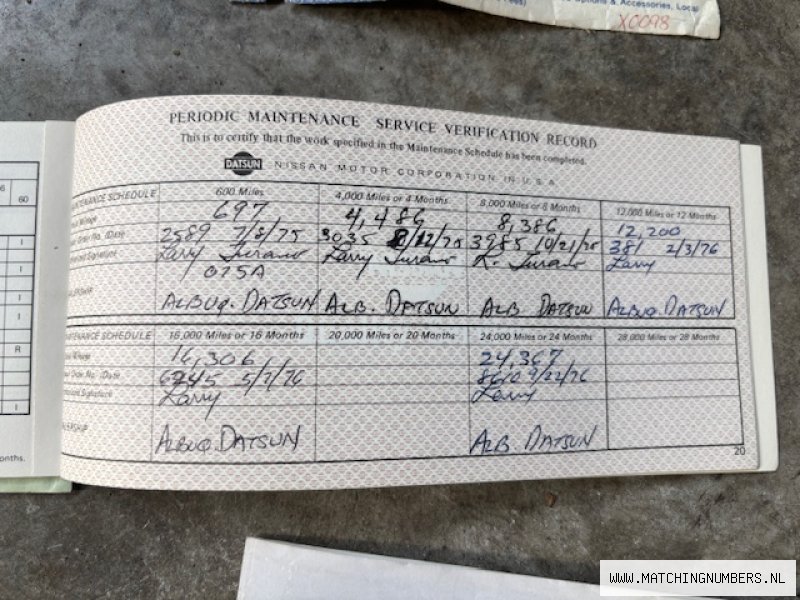 Options & Accessories, Local
X0098
PERIODIC MAINTENANCE SERVICE VERIFICATION RECORD
This is to certify that the work specified in the Maintenance Schedule has been completed.
DATSUN NISSAN MOTOR CORPORATION IN U.S.A.
6 60
MAINTENANCE SCHEDULE 600 Miles 4,000 Miles or 4 Months 8,000 Miles or 8 Months 12,000 Miles or 12 Months
Mileage 697 4,486 8,386 12,200
Order No. /Date 2589 7/8/75 3035 8/12/75 3985 10/21/75 381 2/3/76
Signature Larry Larry L. Larry
075A
ALBUQ. DATSUN ALB. DATSUN ALB DATSUN ALBUQ. DATSUN
MAINTENANCE SCHEDULE 16,000 Miles or 16 Months 20,000 Miles or 20 Months 24,000 Miles or 24 Months 28,000 Miles or 28 Months
Mileage 16,306 24,367
Order No. /Date 5/7/76 8610 9/22/76
Signature Larry Larry
ALBUQ. DATSUN ALB. DATSUN
20
onths.
WWW.MATCHINGNUMBERS.NL